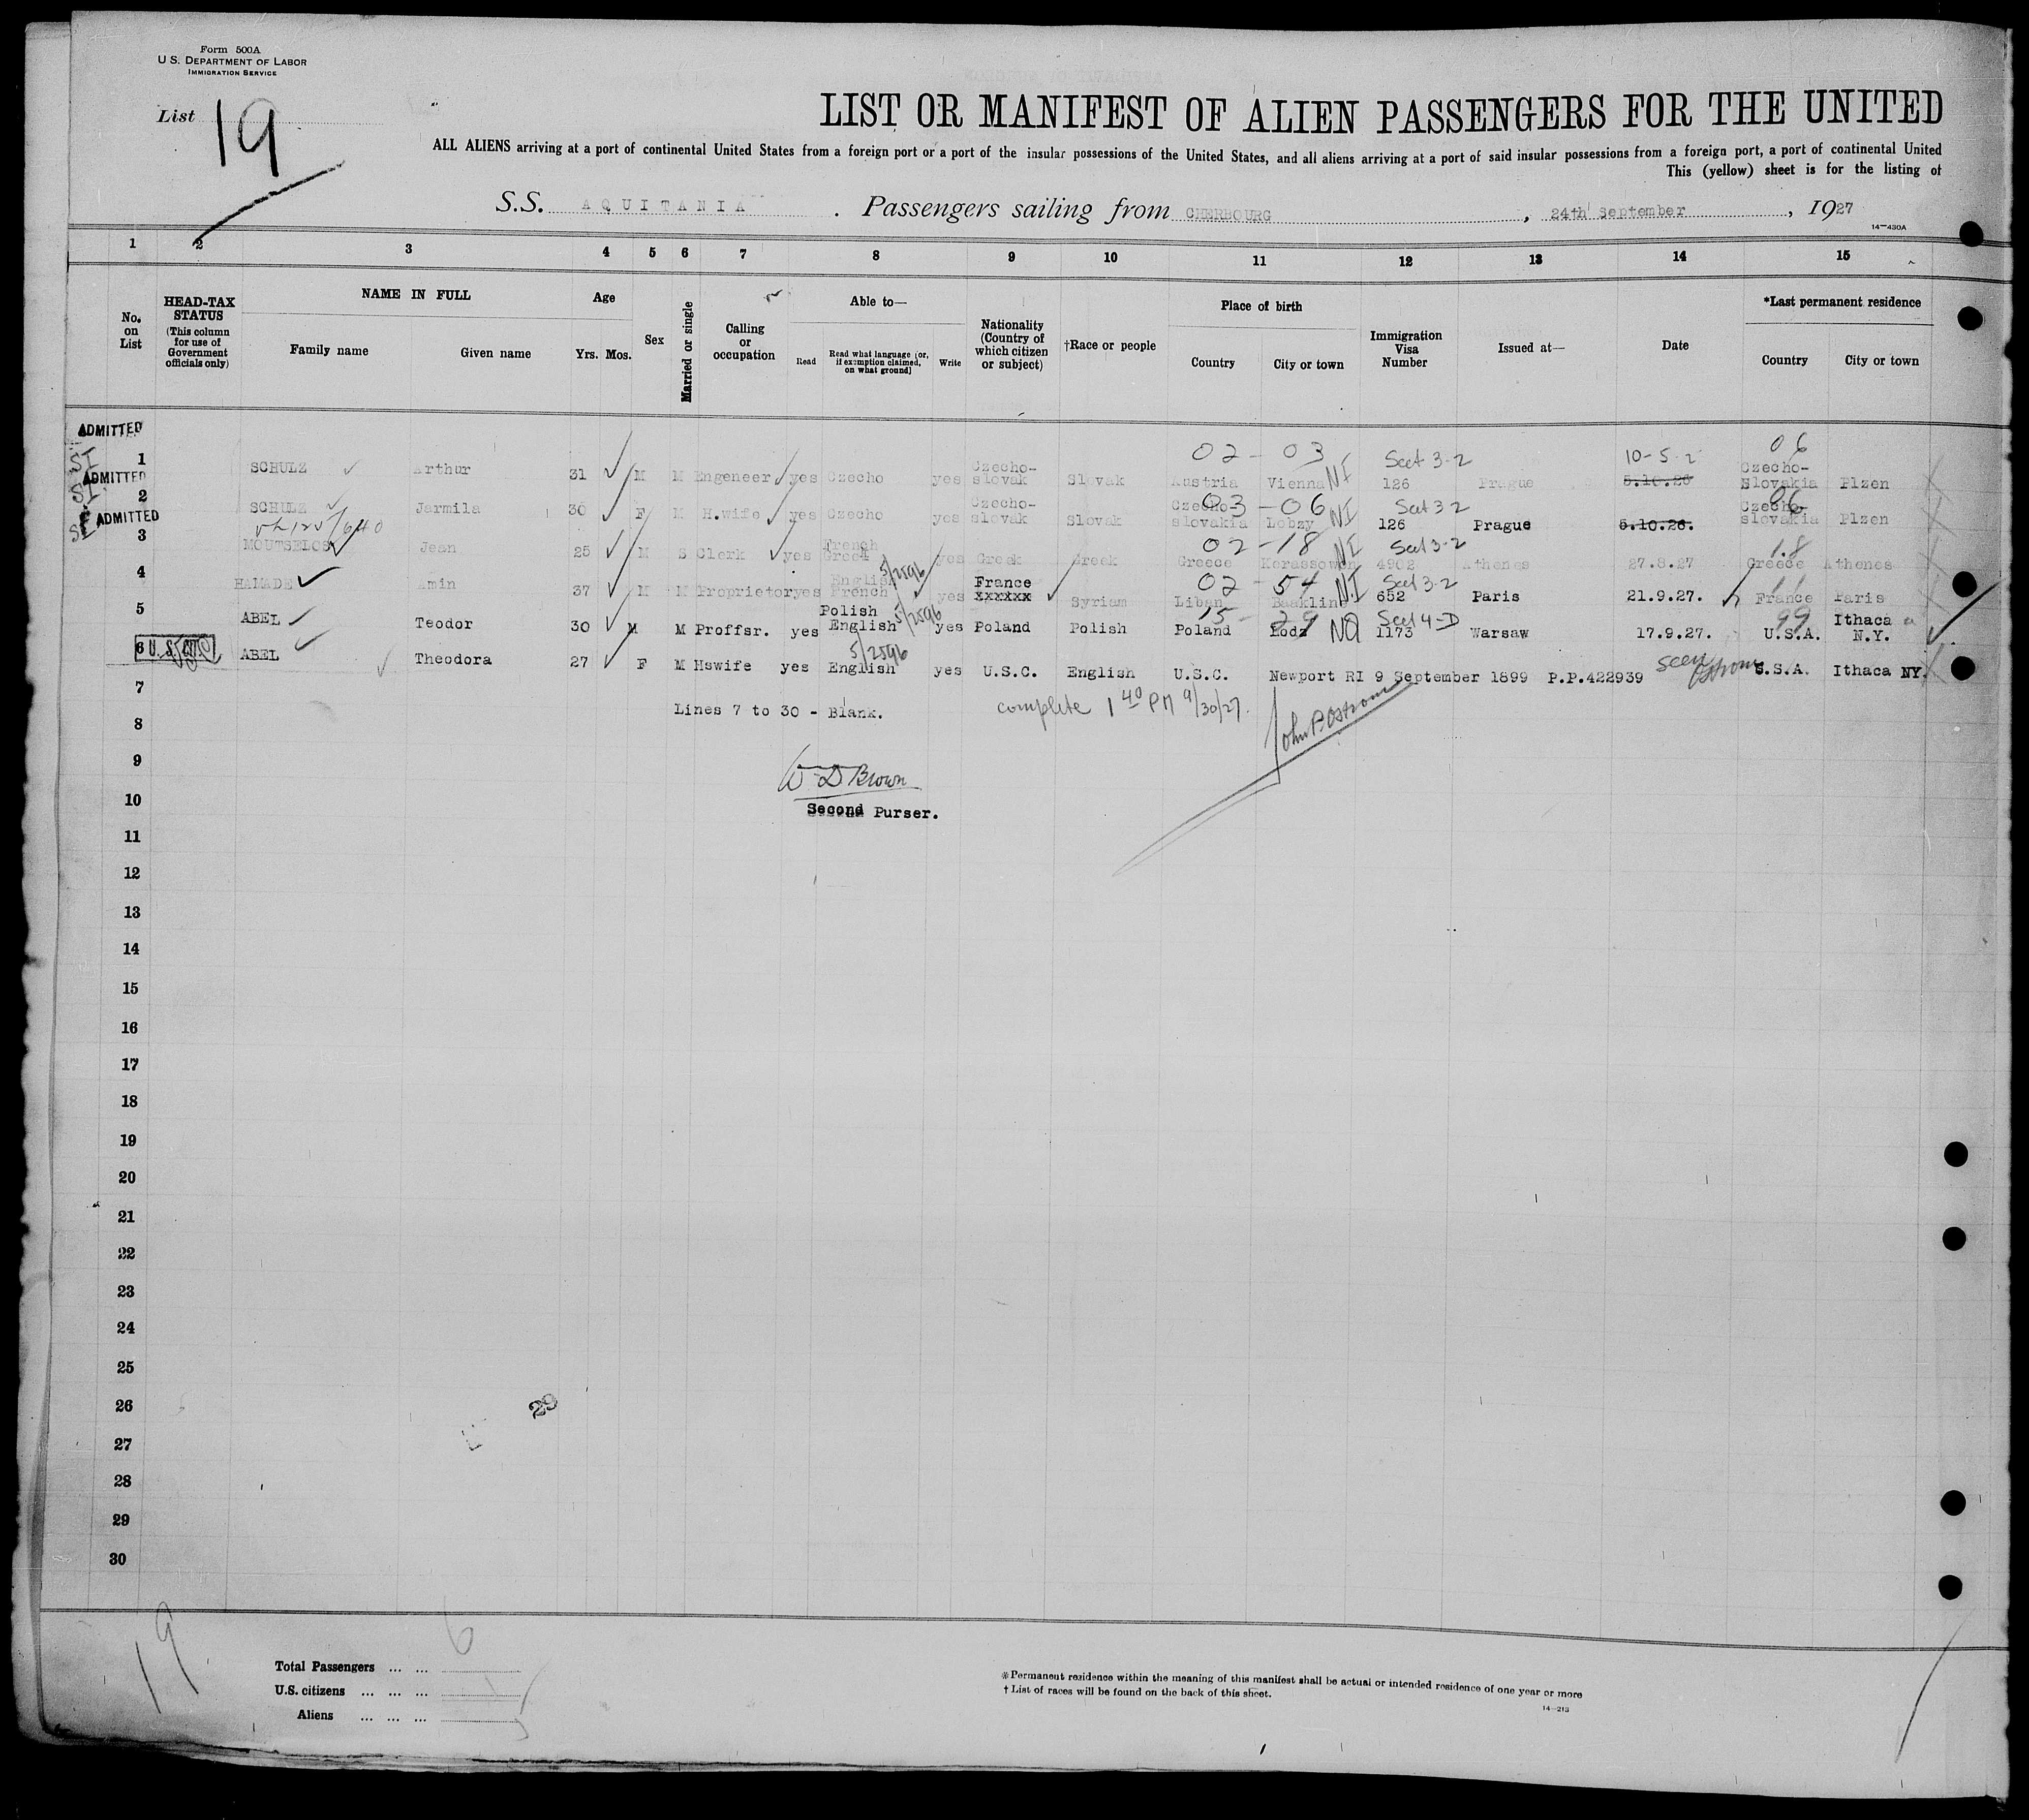 Form 500A
U. S. DEPARTMENT OF LABOR
IMMIGRATION SERVICE
List 19
LIST OR MANIFEST OF ALIEN PASSENGERS FOR THE UNITED
ALL ALIENS arriving at a port of continental United States from a foreign port or a port of the insular possessions of the United States, and all aliens arriving at a port of said insular possessions from a foreign port, a port of continental United
This (yellow) sheet is for the listing of
S.S. AQUITANIA. Passengers sailing from CHERBOURG, 24th September, 1927
14—430A
1 2 3 4 5 6 7 8 9 10 11 12 13 14 15
No. on List
HEAD-TAX STATUS (This column for use of Government officials only)
NAME IN FULL
Family name Given name
Age
Yrs. Mos.
Sex
Married or single
Calling or occupation
Able to—
Read Read what language [or, if exemption claimed, on what ground] Write
Nationality (Country of which citizen or subject)
†Race or people
Place of birth
Country City or town
Immigration Visa Number
Issued at—
Date
*Last permanent residence
Country City or town
ADMITTED
02 - 03 Sect 3-2 10-5-2 06
SI 1 SCHULZ Arthur 31 M M Engeneer yes Czecho yes Czecho-slovak Slovak Austria Vienna NI 126 Prague 5.10.26 Czecho-Slovakia Plzen
ADMITTED
03 - 06 Sect 3-2 06
SI 2 SCHULZ Jarmila 30 F M H.wife yes Czecho yes Czecho-slovak Slovak Czecho-slovakia Lobzy NI 126 Prague 5.10.26. Czecho-slovakia Plzen
ADMITTED
02 - 18 Sect 3-2 18
3 MOUTSELOS Jean 25 M S Clerk yes French Greek yes Greek Greek Greece Kerassowon NI 4902 Athenes 27.8.27 Greece Athenes
5/2596 02 - 54 Sect 3-2 11
4 HAMADE Amin 37 M M Proprietor yes English French yes France xxxxxx Syriam Liban Baakline NI 652 Paris 21.9.27. France Paris
5/2596 15 - 29 Sect 4-D 99
5 ABEL Teodor 30 M M Proffsr. yes Polish English yes Poland Polish Poland Lodz NQ 1173 Warsaw 17.9.27. U.S.A. Ithaca N.Y.
5/2596
6 U.S. ABEL Theodora 27 F M Hswife yes English yes U.S.C. English U.S.C. Newport RI 9 September 1899 P.P.422939 seen Ostrom S.S.A. Ithaca NY.
7
Lines 7 to 30 - Blank. complete 1 40 PM 9/30/27. John P Ostrom
8
9
W D Brown
10
Second Purser.
11
12
13
14
15
16
17
18
19
20
21
22
23
24
25
26
29
27
28
29
30
19
6
Total Passengers ... ...
U.S. citizens ... ... ... 1
Aliens ... ... ... 5
*Permanent residence within the meaning of this manifest shall be actual or intended residence of one year or more
†List of races will be found on the back of this sheet.
14—213